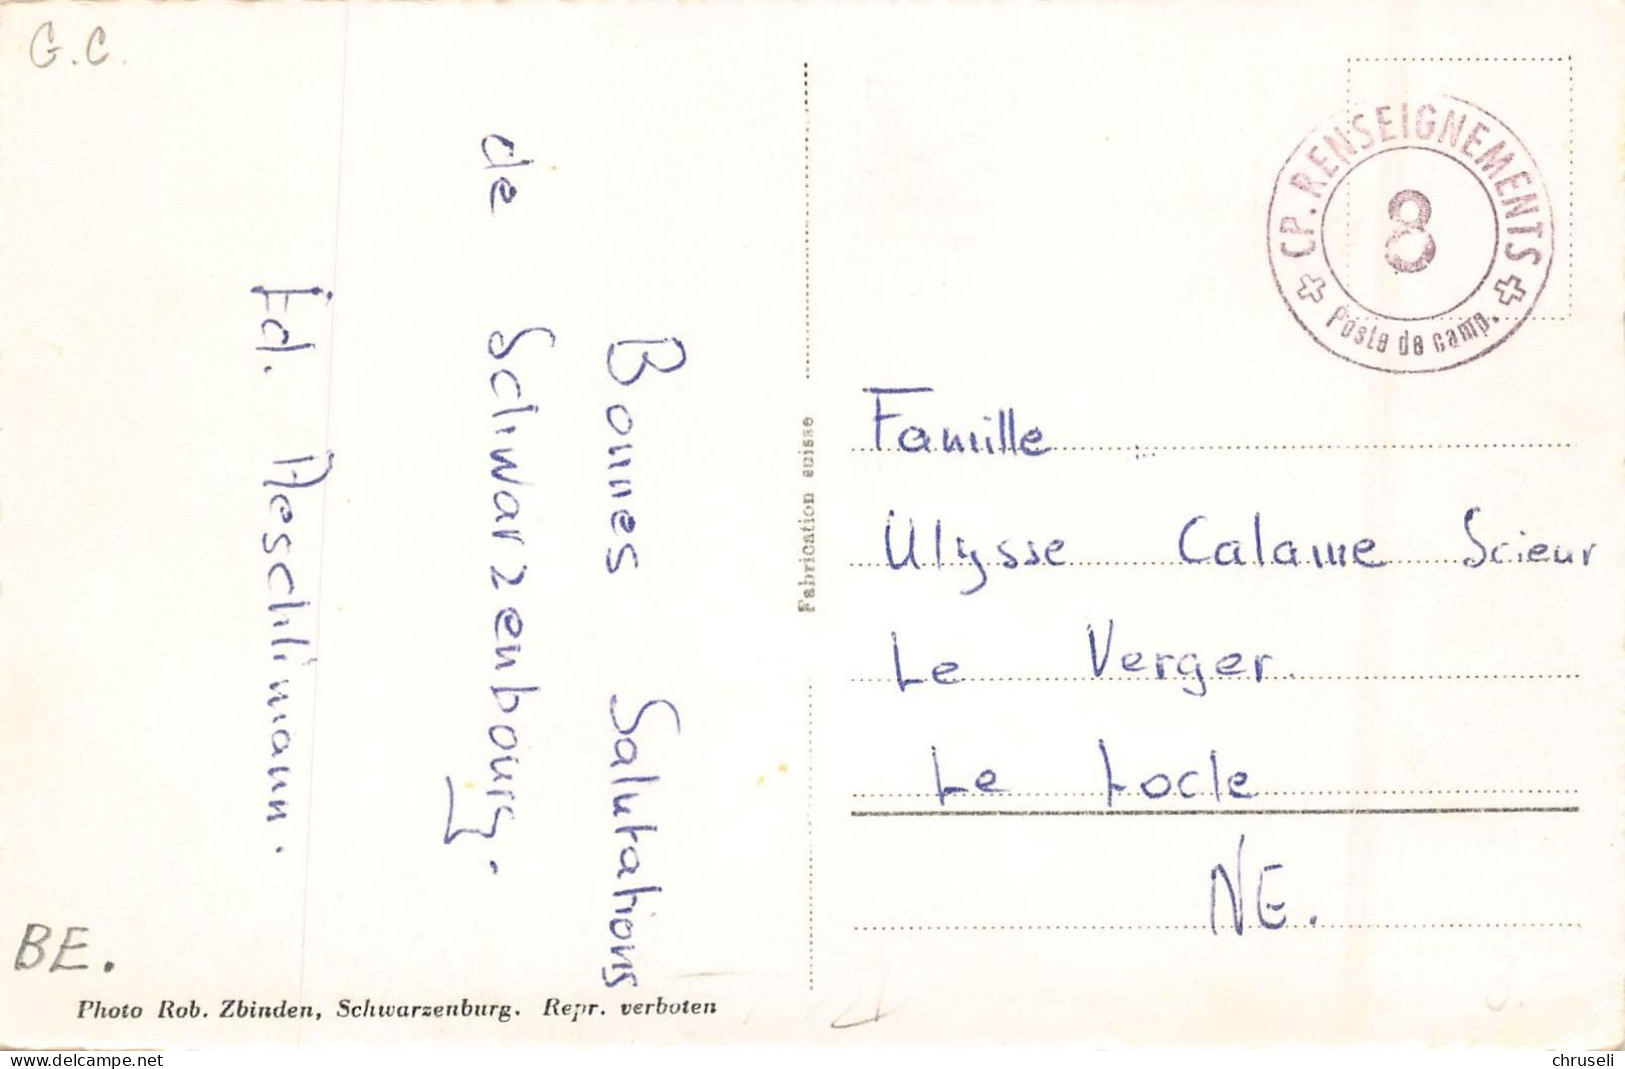 G.C.
Bonnes Salutations
de Schwarzenbourg.
Ed. Aeschlimann.
BE.
Photo Rob. Zbinden, Schwarzenburg. Repr. verboten
Fabrication suisse
CP. RENSEIGNEMENTS
8
Poste de camp.
Famille
Ulysse Calame Scieur
Le Verger.
Le Locle
NE.
chruseli